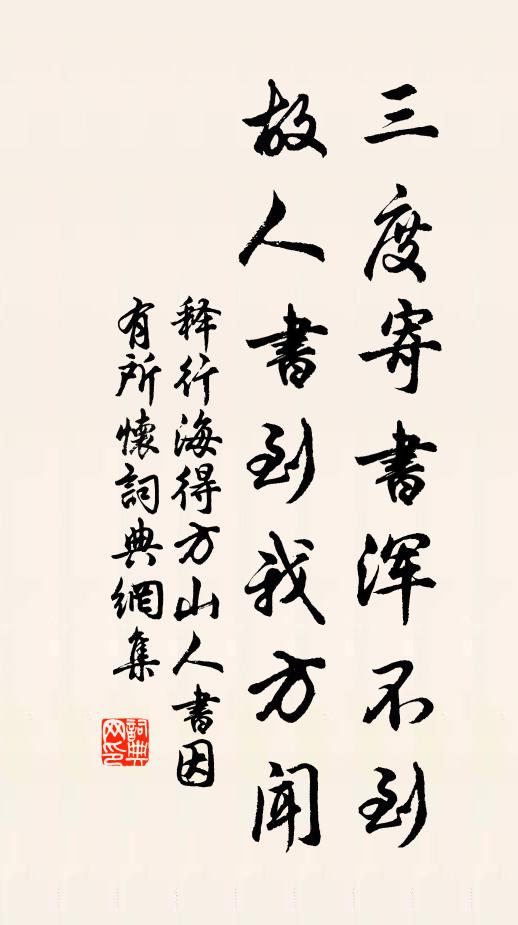 三度寄書浑不到
故人書到我方闻
释行海得方山人書因
有所懷詞典網集
詞典網印